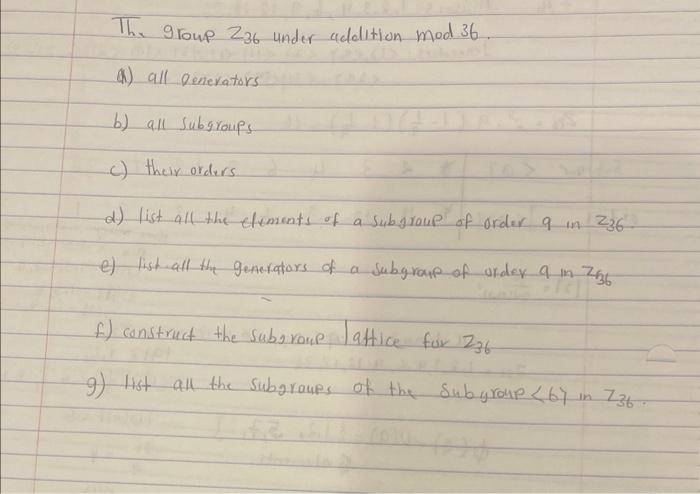 The group Z36 under addition mod 36.
a) all generators
b) all subgroups
c) their orders
d) list all the elements of a subgroup of order 9 in Z36.
e) list all the generators of a subgroup of order 9 in Z36
f) construct the subgroup lattice for Z36
g) list all the subgroups of the subgroup <6> in Z36.